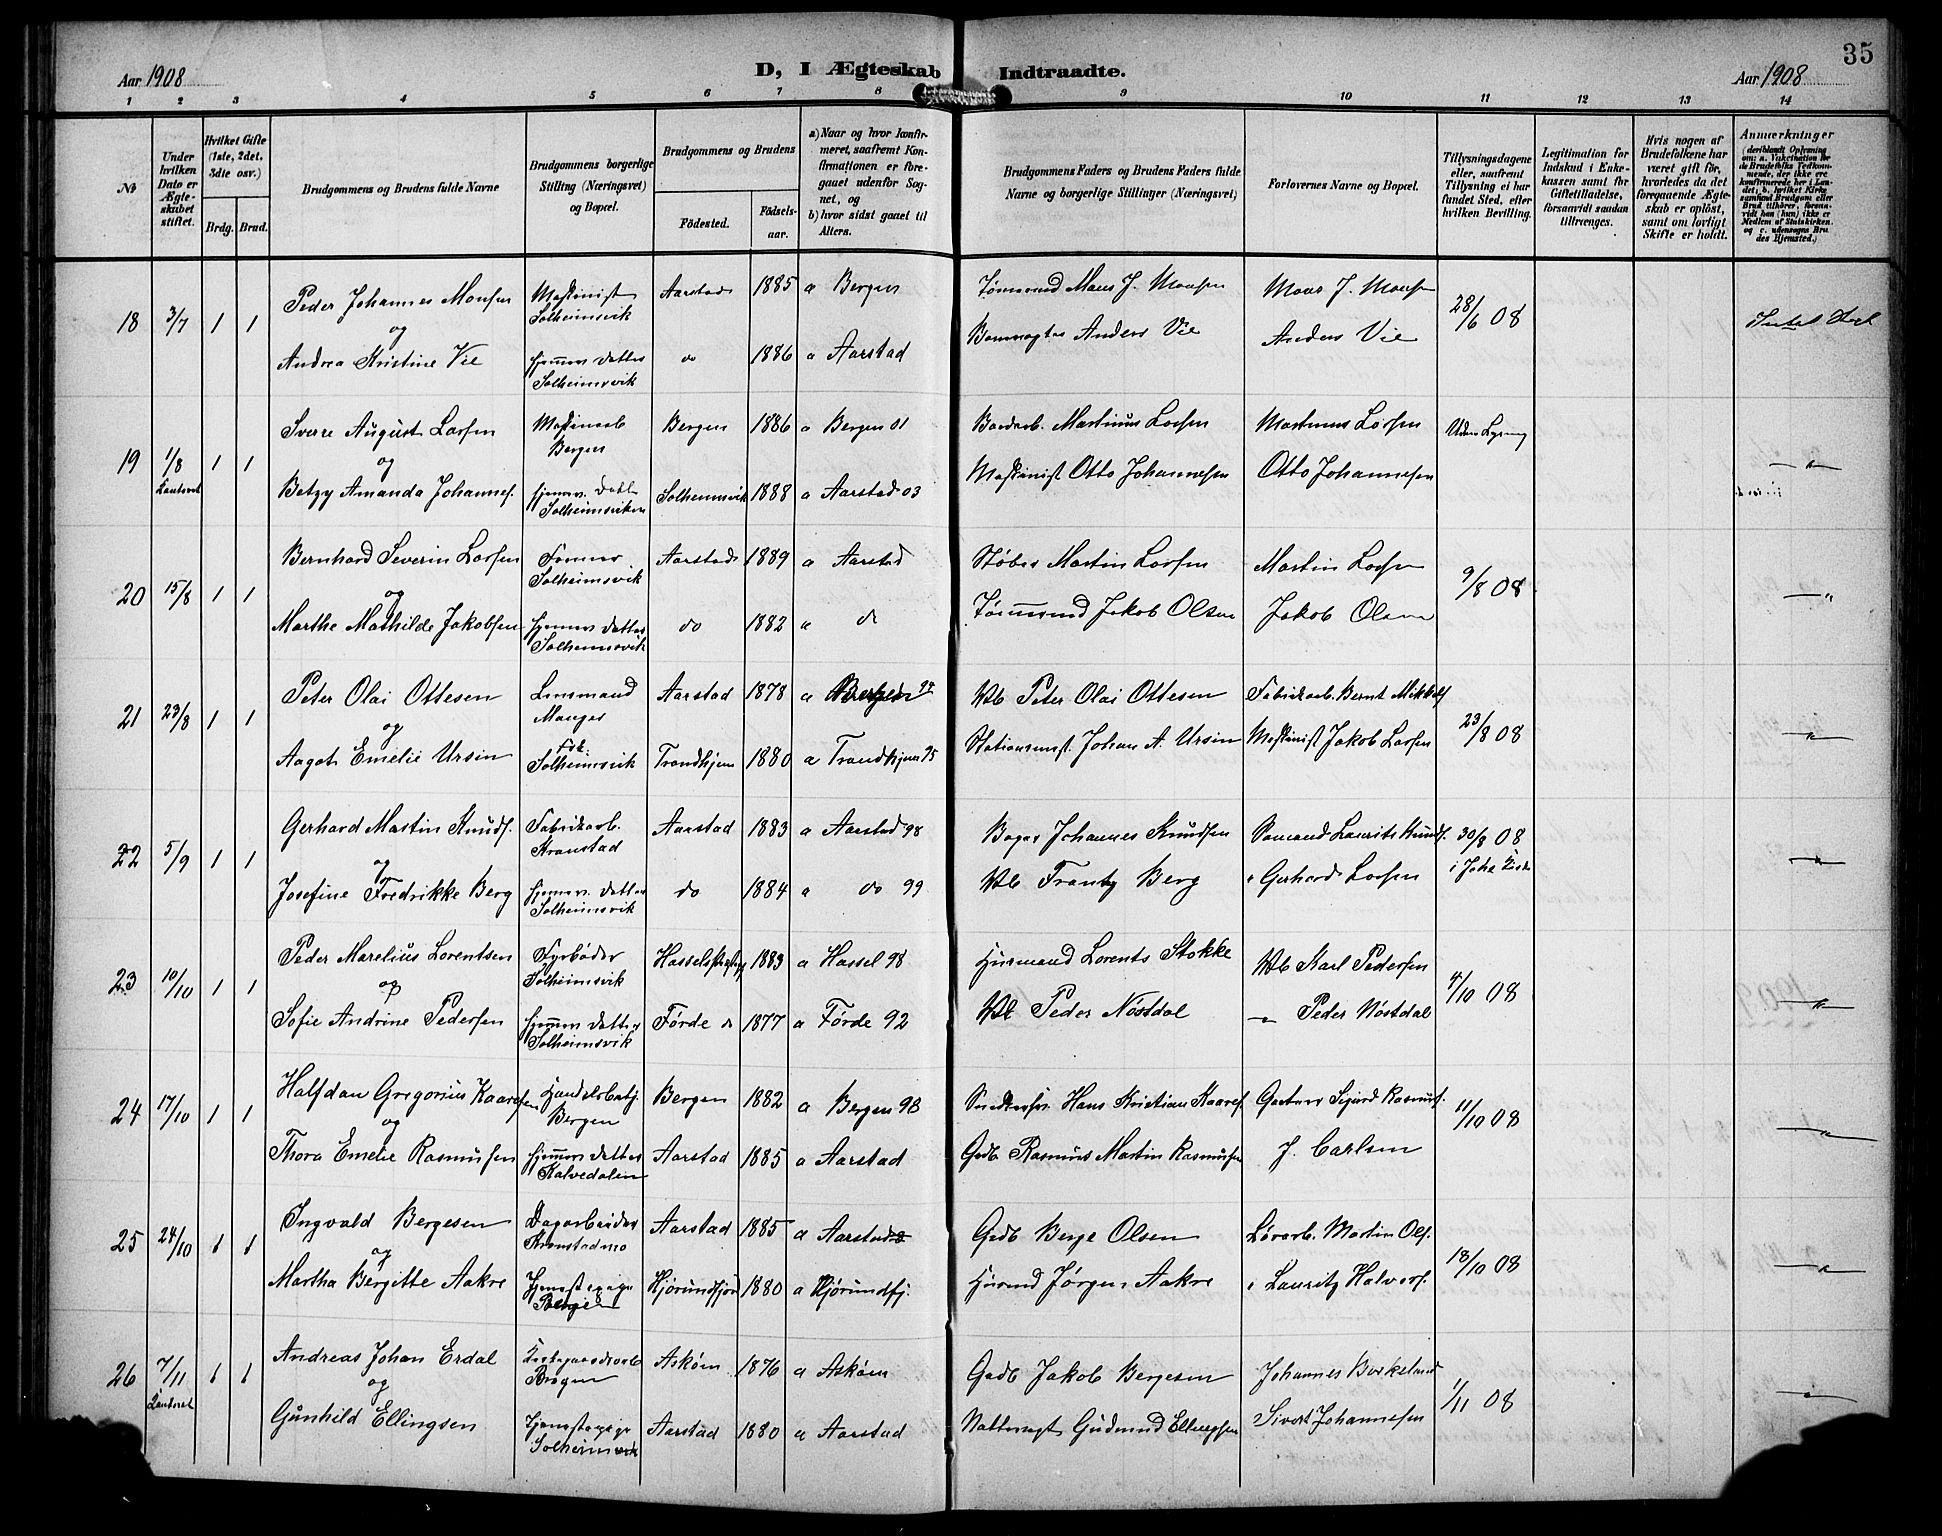 35
Aar 1908
D, I Ægteskab Indtraadte.
Aar 1908
1 2 3 4 5 6 7 8 9 10 11 12 13 14
No
Under hvilken Dato er Ægteskabet stiftet.
Hvilket Gifte (1ste, 2det, 3die osv.)
Brdg. Brud.
Brudgommens og Brudens fulde Navne
Brudgommens borgerlige Stilling (Næringsvei) og Bopæl.
Brudgommens og Brudens
Fødested.
Fødsels-aar.
a) Naar og hvor konfirmeret, saafremt Konfirmationen er foregaaet udenfor Sognet, og
b) hvor sidst gaaet til Alters.
Brudgommens Faders og Brudens Faders fulde Navne og borgerlige Stillinger (Næringsvei)
Forlovernes Navne og Bopæl.
Tillysningsdagene eller, saafremt Tillysning ei har fundet Sted, efter hvilken Bevilling.
Legitimation for Indskud i Enkekassen samt for Giftetilladelse, forsaavidt saadan tiltrænges.
Hvis nogen af Brudefolkene har været gift før, hvorledes da det foregaaende Ægteskab er opløst, samt om lovligt Skifte er holdt.
Anmærkninger
18 3/7 1 1 Peder Johannes Monsen Maskinist Solheimsvik Aarstad 1885 a Bergen Tømmermd Mons J. Monsen Mons J. Monsen 28/6 08
og
Andrea Kristine Vie Hjemmev. datter Solheimsvik do 1886 a Aarstad Anders Vie Anders Vie
19 1/8 1 1 Sverre August Larsen Maskinarb Bergen Bergen 1886 a Bergen 01 Martinius Larsen Martinus Larsen Uden Lysning
og
Betzy Amanda Johannes. Hjemmev. datt Solheimsviken Solheimsvik 1888 a Aarstad 03 Maskinist Otto Johannesen Otto Johannesen
20 15/8 1 1 Bernhard Severin Larsen Former Solheimsvik Aarstad 1889 a Aarstad Støber Martin Larsen Martin Larsen 9/8 08
og
Marthe Mathilde Jakobsen Hjemmev datter Solheimsvik do 1882 a do Tømmermd Jakob Olsen Jakob Olsen
21 23/8 1 1 Peter Olai Ottesen Manger Aarstad 1878 a Bergen 94 Arb Peter Olai Ottesen Fabrikarb. Bernt Mikkels 23/8 08
og
Aagot Emelie Ursin Frk. Solheimsvik Trondhjem 1880 a Trondhjem 95 Stationsmst. Johan A. Ursin Maskinist Jakob Larsen
22 5/9 1 1 Gerhard Martin Knuds. Fabrikarb. Kronstad Aarstad 1883 a Aarstad 98 Bager Johannes Knudsen Sømand Laurits Knuds. 30/8 08
og
Josefine Fredrikke Berg Hjemmev. datter Solheimsvik do 1884 a do 99 Arb Frantz Berg " Gerhard Larsen i Joha Kirke
23 10/10 1 1 Peder Marelius Lorentsen Fyrbøder Solheimsvik 1883 a Hassel 98 Husmand Lorents Stokke Arb Karl Pedersen 4/10 08
og
Sofie Andrine Pedersen Hjemmev datter Solheimsvik Førde do 1877 a Førde 92 Arb Peder Nøstdal — Peder Nøstdal
24 17/10 1 1 Halfdan Gregorius Kaarsen Handelsbetj. Bergen Bergen 1882 a Bergen 98 Hans Kristian Kaares. Gartner Sigurd Rasmus. 11/10 08
og
Thora Emelie Rasmussen Hjemmev datter Kalvedalen Aarstad 1885 a Aarstad Gdb Rasmus Martin Rasmussen J. Carlsen
25 24/10 1 1 Ingvald Bergesen Dagarbeider Kronstadmo Aarstad 1885 a Aarstad Gdb Berge Olsen Martin Ols. 18/10 08
og
Martha Bergitte Aakre Tjenestepige Bergen Hjørundfjord 1880 a Hjørundfj. Husmd Jørgen Aakre " Lauritz Halvors.
26 7/11 1 1 Andreas Johan Erdal Bergen Askøen 1876 a Askøen Gdb Jakob Bergesen Johannes Birkeland 1/11 08
og
Gunhild Ellingsen Tjenestepige Solheimsvik Aarstad 1880 a Aarstad Nattevagt Gudmund Ellingsen Sivert Johannesen